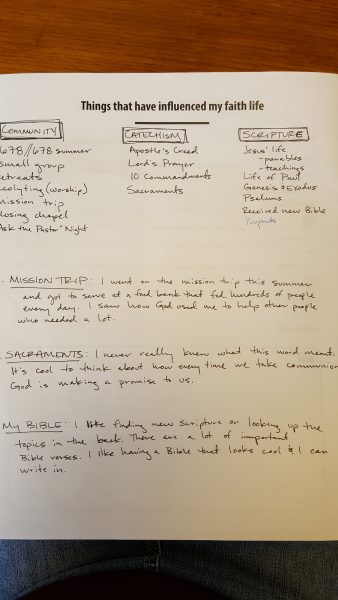 Things that have influenced my faith life
COMMUNITY
678//678 summer
small group
retreats
acolyting (worship)
mission trip
closing chapel
"Ask the Pastor" Night
CATECHISM
Apostle's Creed
Lord's Prayer
10 Commandments
Sacraments
SCRIPTURE
Jesus' life
- parables
- teachings
Life of Paul
Genesis & Exodus
Psalms
Received new Bible
Prophets
MISSION TRIP: I went on the mission trip this summer
and got to serve at a food bank that fed hundreds of people
every day. I saw how God used me to help other people
who needed a lot.
SACRAMENTS: I never really knew what this word meant.
It's cool to think about how every time we take communion
God is making a promise to us.
MY BIBLE: I like finding new Scripture or looking up the
topics in the back. There are a lot of important
Bible verses. I like having a Bible that looks cool & I can
write in.